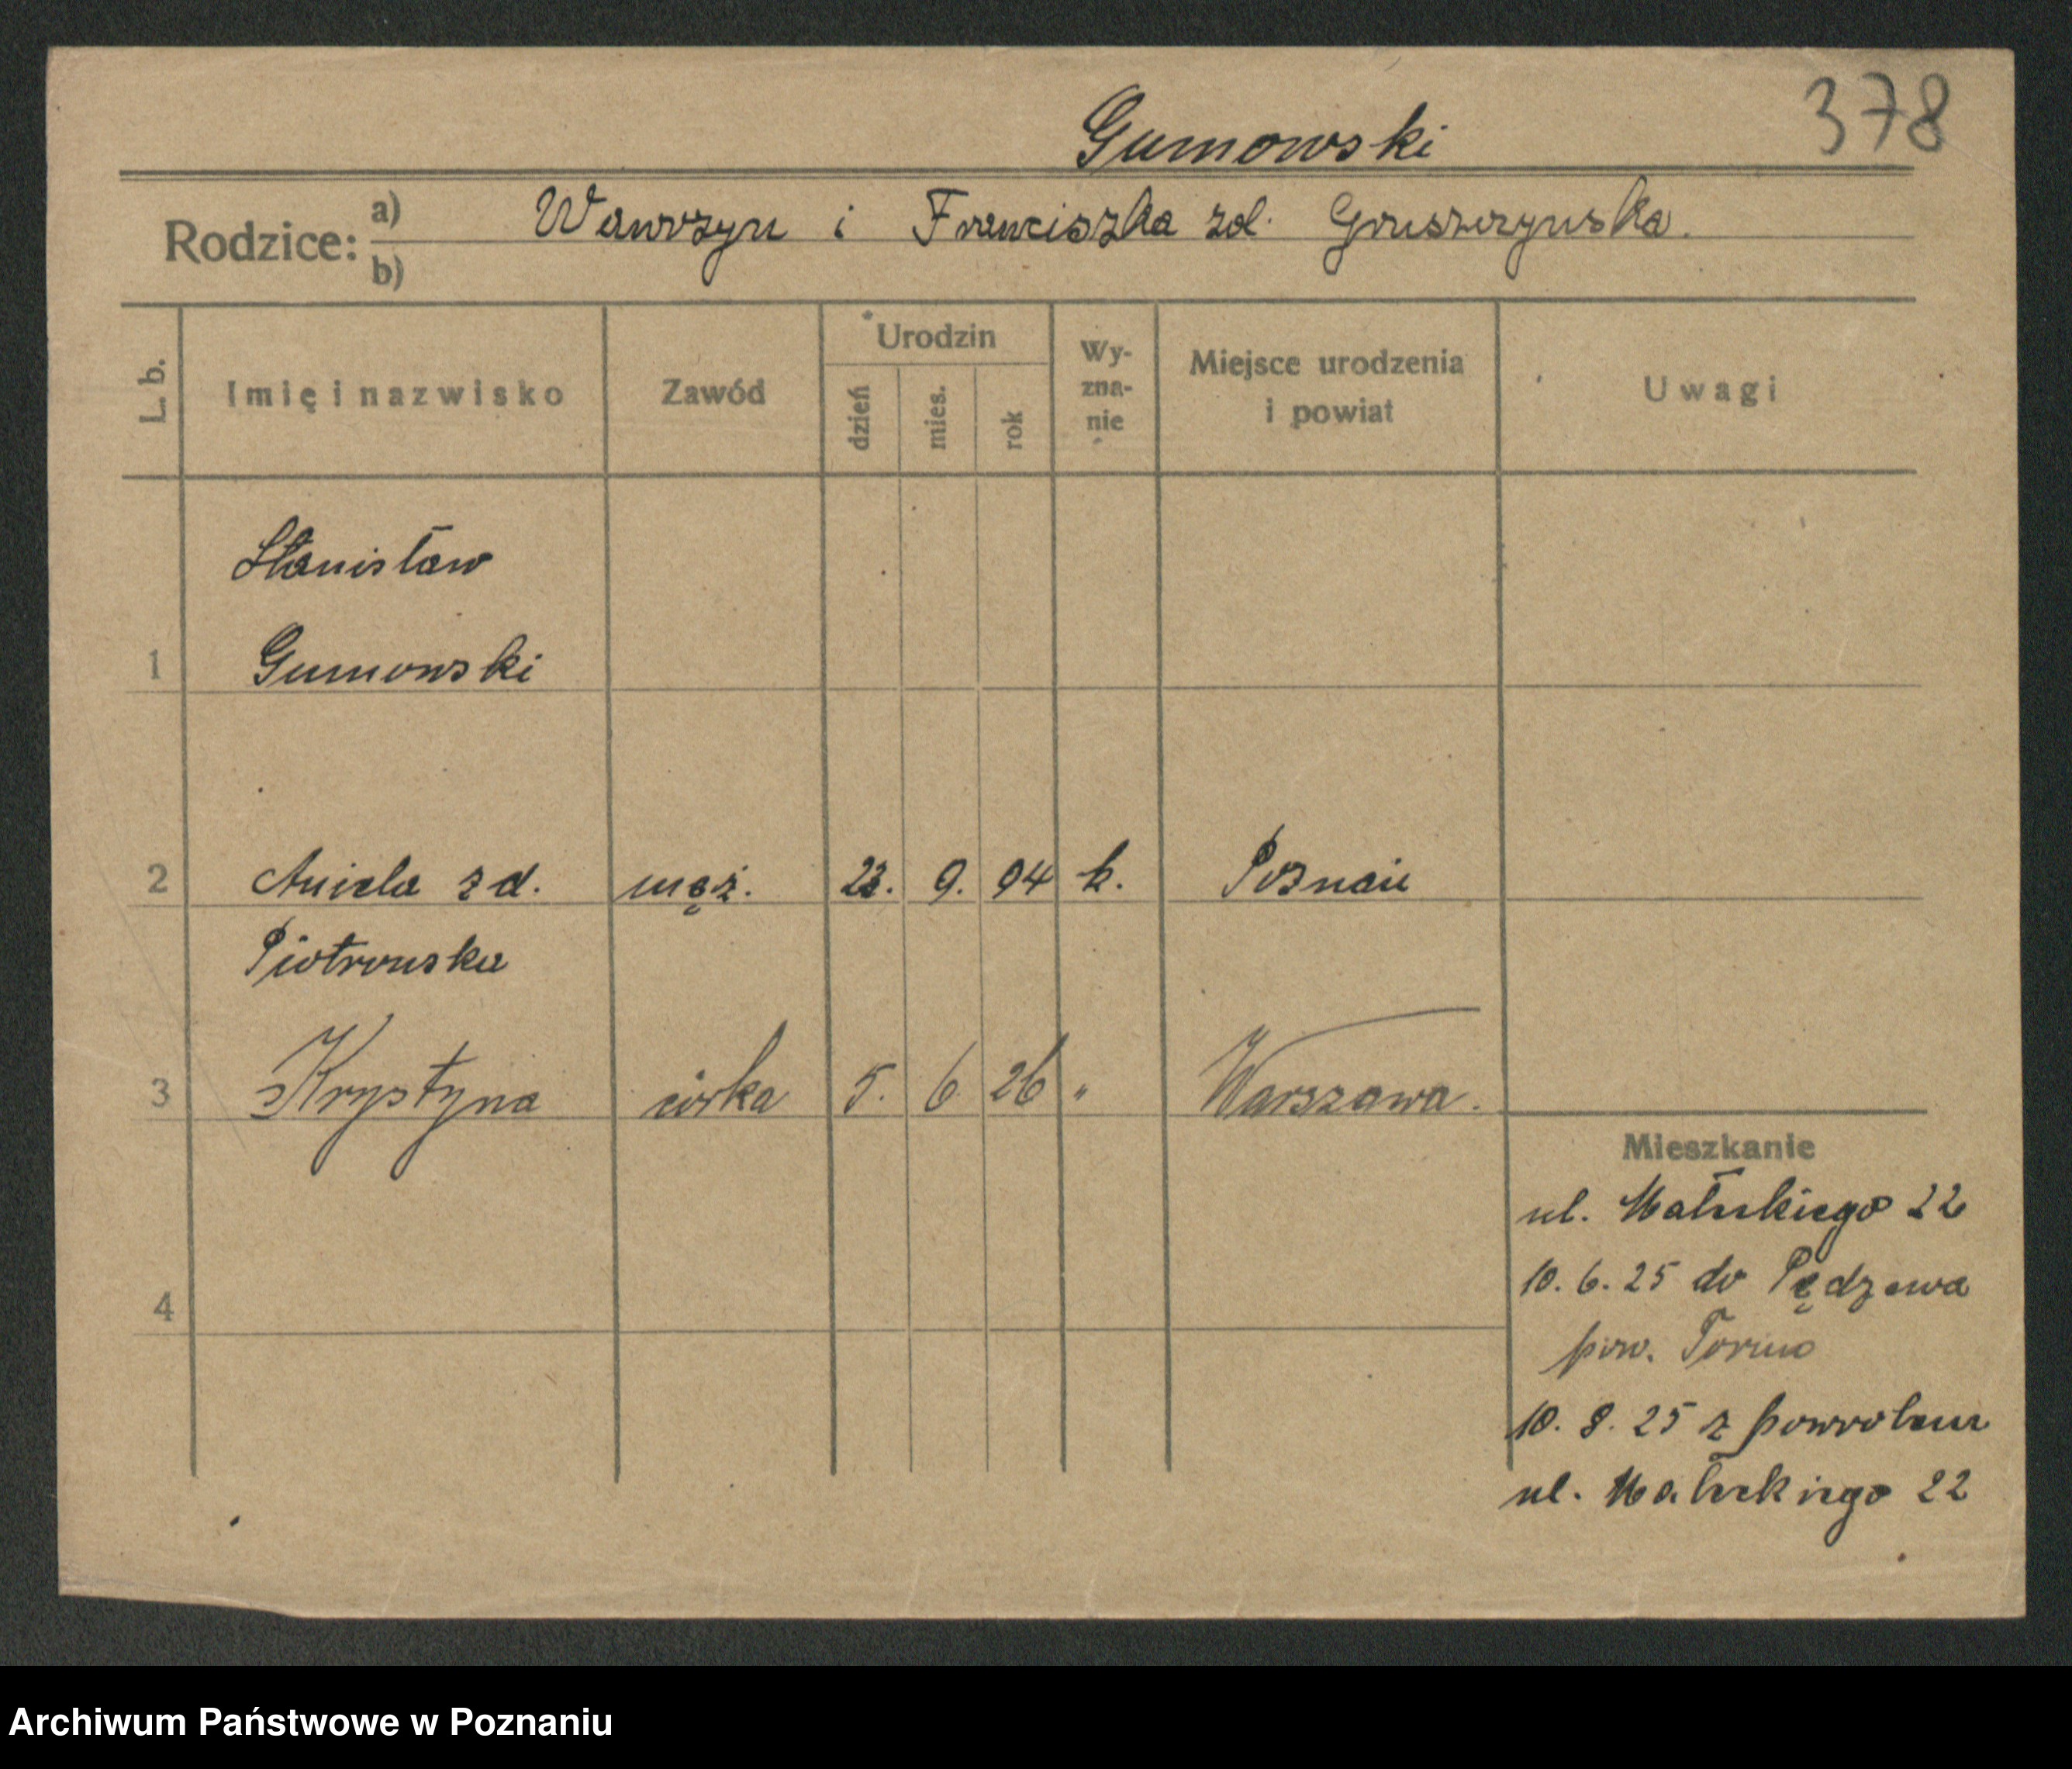 378
Gumowski
Rodzice: a) b) Wawrzyn i Franciszka zd. Gruszczyńska.
L. b. Imię i nazwisko Zawód Urodzin dzień mies. rok Wy-zna-nie Miejsce urodzenia i powiat Uwagi
Stanisław
1 Gumowski
2 Aniela zd. męż. 23. 9. 94 k. Poznań
Piotrowska
3 Krystyna córka 5. 6 26 " Warszawa.
4
Mieszkanie
ul. Małeckiego 22
10. 6. 25 do Pędzewa
pow. Toruń
10. 8. 25 z powrotem
ul. Małeckiego 22
Archiwum Państwowe w Poznaniu